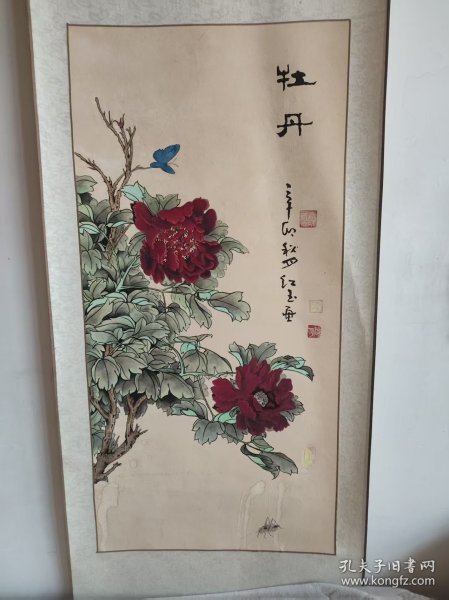 牡丹
辛卯秋月红玉画
孔夫子旧书网
www.kongfz.com